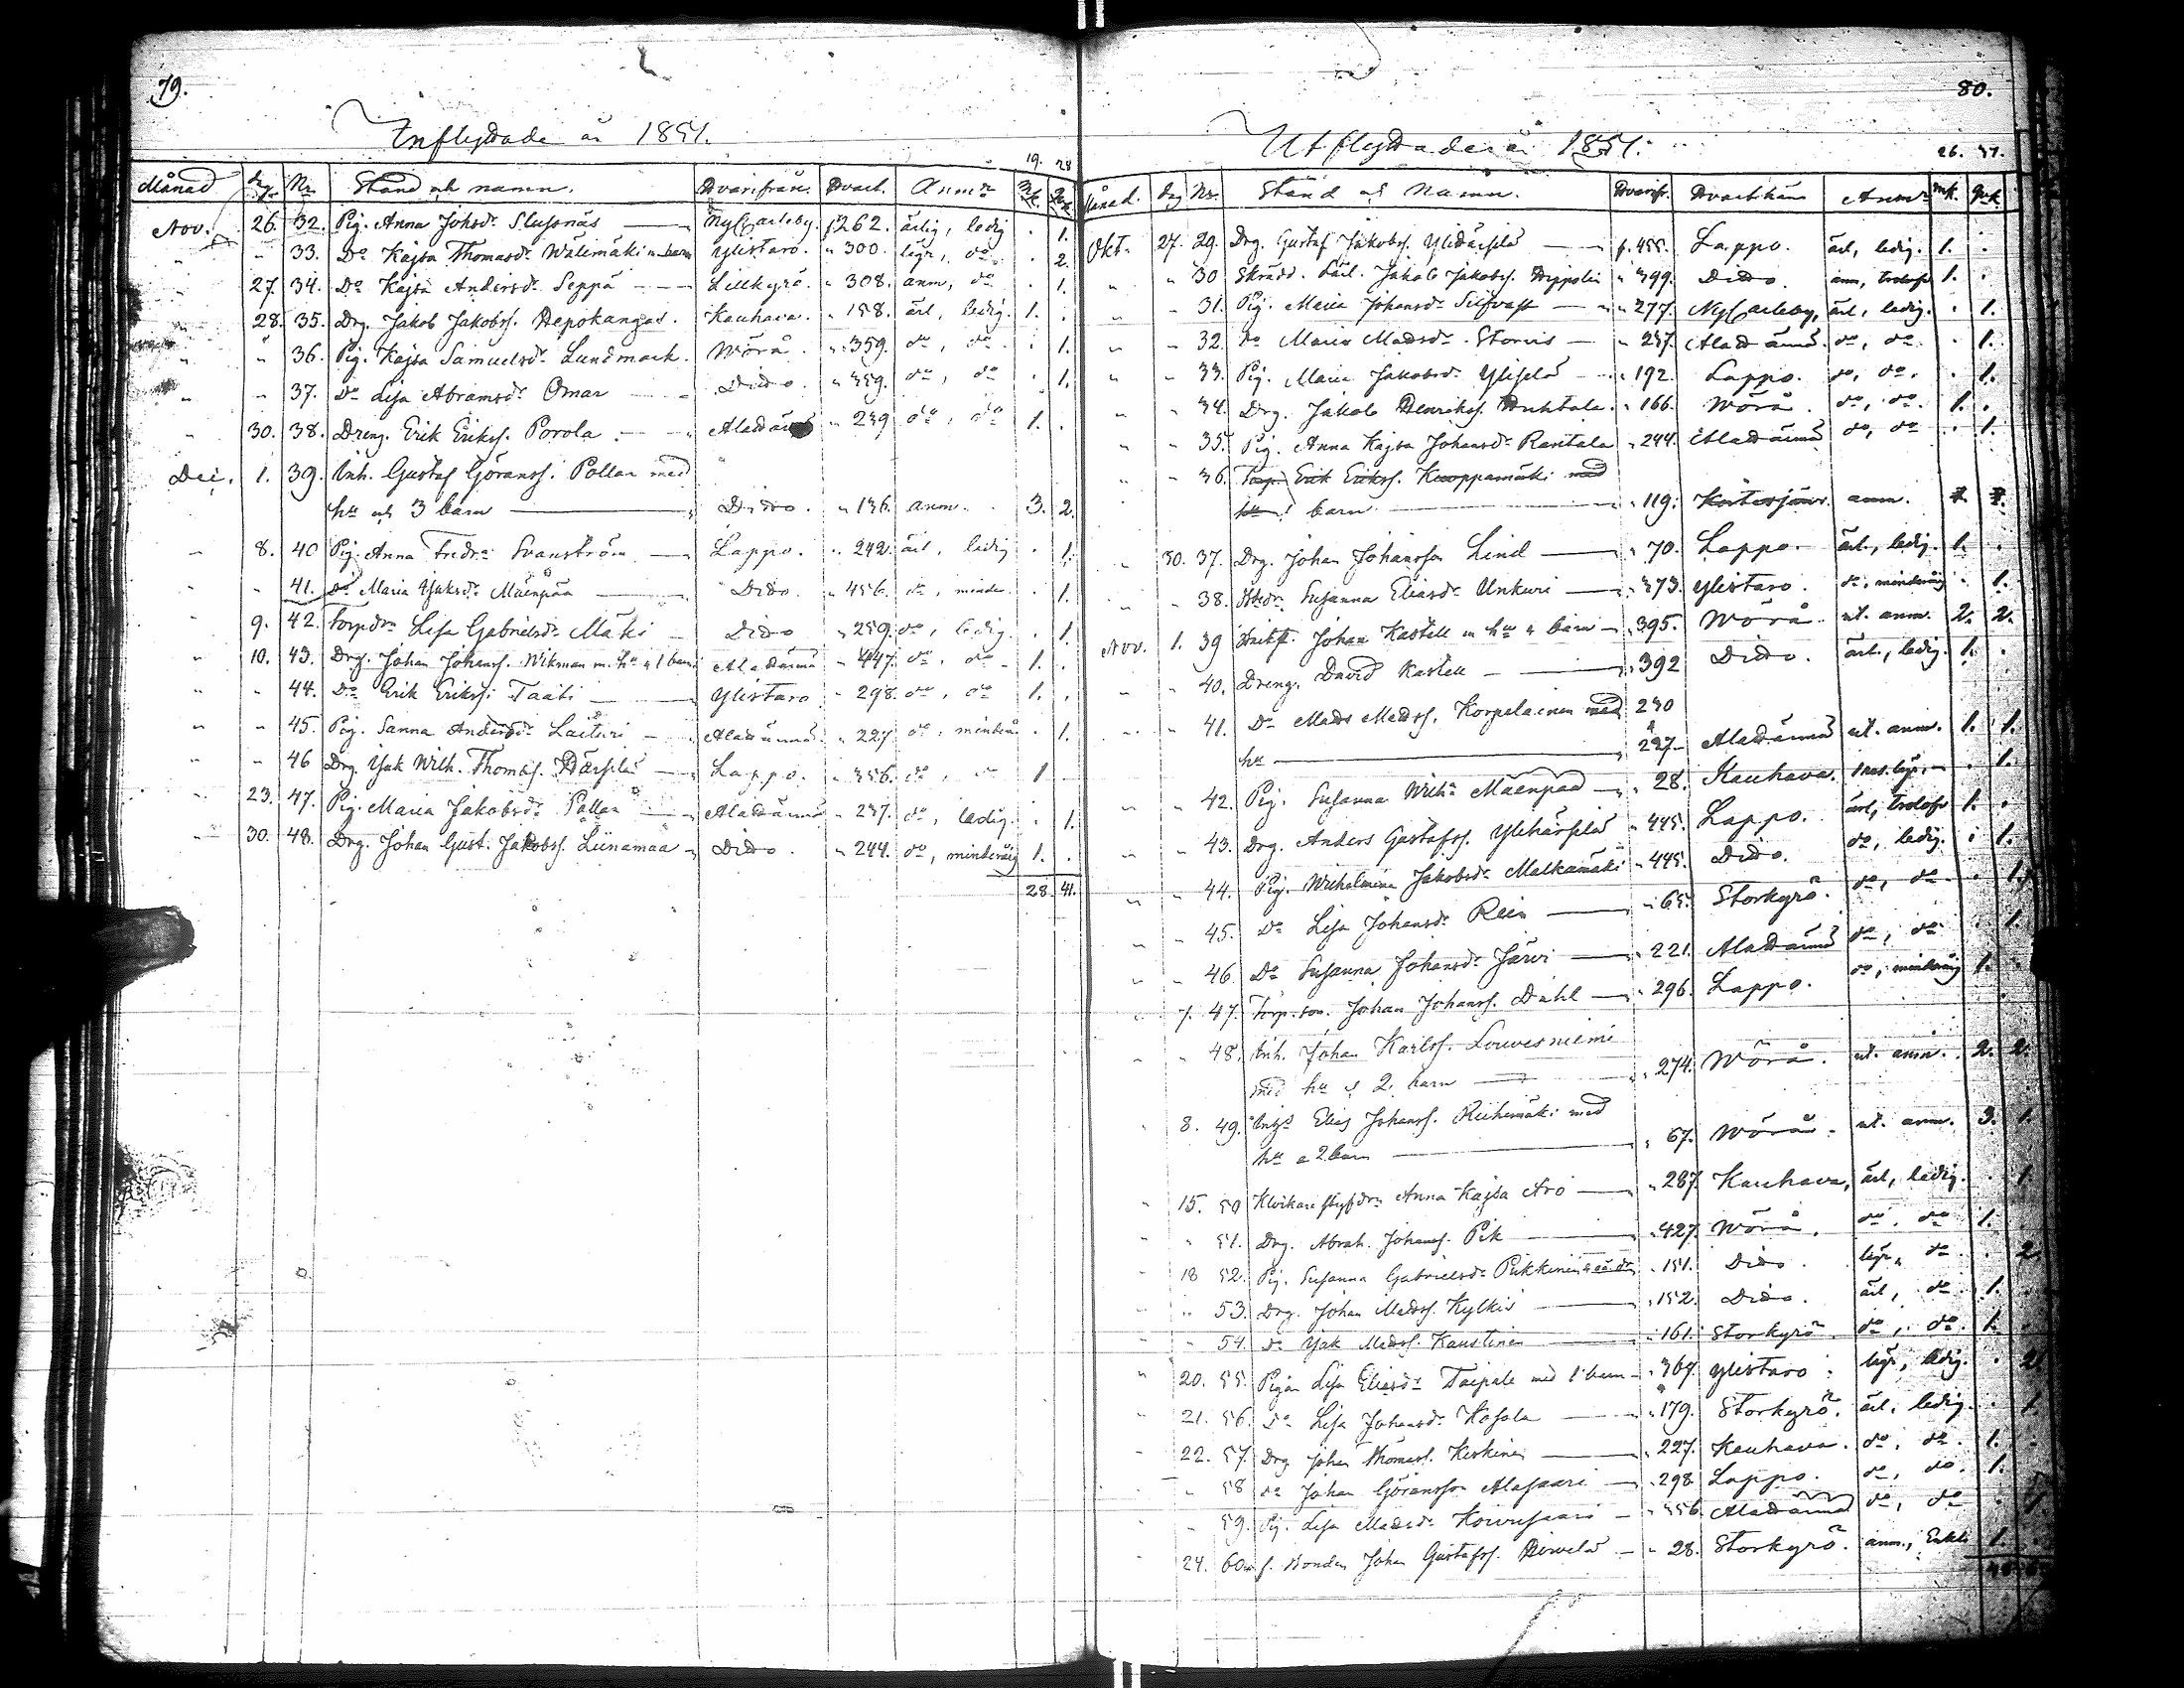 79.
Inflyttade år 1851.
19. 28
Månad Dag Nr Stånd och namn. Hvarifrån. Hvart. Anmn Mk. Qvk.
Nov. 26. 32. Pig. Anna Johsdr Slussnäs Ny Carleby. f 262. ärlig, ledig . 1.
" " 33. Do Kajsa Thomasdr Wälimäki m barn Ylistaro. " 300. lägr, do . 2.
" 27. 34. Do Kajsa Andersdr Seppä Lillkyrö. " 308. anm, do . 1.
" 28. 35. Drg. Jakob Jakobss. Hepokangas. Kauhava. " 158. ärl, ledig. 1. .
" " 36. Pig. Kajsa Samuelsdr Lundmark. Wörå. " 359. do, do . 1.
" " 37. Do Lisa Abramsdr Omar Dido. " 359. do, do . 1.
" 30. 38. Dreng. Erik Erikss. Porola. Alahärmä " 239 do, do 1. .
Dec. 1. 39. Inh. Gustaf Göranss. Pollar med
hu och 3 barn Dido. " 136. anm. 3. 2.
" 8. 40 Pig. Anna Svanström Lappo. " 242. ärl, ledig . 1.
" " 41. do Maria Isaksdr Mäenpää Dido. " 456. do, minder. . 1.
" 9. 42. Torpdr Lisa Gabrielsdr Mäki Dido " 259. do, ledig. . 1.
" 10. 43. Drg. Johan Johanss. Wikman m. hu o 1 barn Alahärmä " 447. do, do 1. .
" " 44. Do Erik Erikss. Taati Ylistaro " 298. do, do 1. .
" " 45. Pig. Sanna Andersdr Laituri Alahärmä " 227 do, minderå . 1.
" " 46 Drg. Isak Wilh. Thomas. Härsilä Lappo. " 356. do, do 1 .
" 23. 47. Pig. Maria Jakobsdr Pollari Alahärmä " 237. do, ledig. . 1.
" 30. 48. Drg. Johan Gust. Jakobss. Liinamaa Dido. " 244. do, minderåig 1. .
28. 41.
80.
Utflyttade år 1851.
26. 37.
Månad. Dag Nr. Stånd och Namn. Hvarifr. Hvarthän Anmn mk. qvk.
Okt. 27. 29. Drg. Gustaf Jakobss. Ylihärsilä f. 455. Lappo. ärl, ledig. 1. .
" " 30 Skrädd. Lärl. Jakob Jakobss. Heppoli " 399. Dido. anm, trolofv 1. .
" " 31. Pig. Maria Johansdr Silfvast " 277. Ny Carleby, ärl, ledig. . 1.
" " 32. Do Maria Madsdr Storvis " 237. Alahärmä. do, do . 1.
" " 33. Pig. Maria Jakobsdr Ylisilä " 192. Lappo. do, do. . 1.
" " 34. Drg. Jakob Henrikss. Huhtala. " 166. Wörå. do, do. 1. .
" " 35. Pig. Anna Kajsa Johansdr Rantala " 244. Alahärmä do, do . 1.
" " 36. Torp. Erik Erikss. Kuoppamäki med
hu barn " 119. Kortesjärvi. anm.
" 30. 37. Drg. Johan Johansson Lind " 70. Lappo. ärl., ledig. 1. .
" " 38. Susanna Eliasdr Unkuri " 373. Ylistaro. do, minderåig . 1.
Nov. 1. 39 Johan Kastell m hu o barn " 395. Wörå. ut. anm. 2. 2.
" " 40. Dreng. David Kastell " 392 Dido. ärl., ledig. 1. .
" " 41. Do Mads Madss. Korpelainen med 230
hu 227 Alahärmä ut. anm. 1. 1.
" " 42. Pig. Susanna Wilhs Mäenpää " 28. Kauhava. . 1.
" " 43. Drg. Anders Gustafss. Ylihärsilä " 445. Lappo. ärl, trolofv 1. .
" " 44. Pig. Wilhelmina Jakobsdr Malkamäki " 445. Dido. do, ledig. . 1.
" " 45. Do Lisa Johansdr Rein " 65. Storkyrö. do, do . 1.
" " 46 Do Susanna Johansdr Järvi " 221. Alahärmä do, do . 1.
" 7. 47. Torp. son. Johan Johanss. Dahl " 296. Lappo. do, minderåig 1. .
" " 48. Inh. Johan Karlss. Louvesniemi
med hu o 2 barn " 274. Wörå. ut. anm. 2. 2.
" 8. 49. Elias Johanss. Riihimäki med
hu o 2 barn " 67. Wörå. ut. anm. 3. 1.
" 15. 50 Klockare styfdr Anna Kajsa Aro " 287. Kauhava, ärl, ledig. . 1.
" " 51. Drg. Abrah. Johanss. Pik " 427. Wörå. do. do 1. .
" 18 52. Pig. Susanna Gabrielsdr Pukkinen " 151. Dido. lägr, do . 2.
" " 53. Drg. Johan Madss. Kylkis " 152. Dido. ärl, do 1. .
" " 54. Do Isak Madss. Kaustinen " 161. Storkyrö. do, do. 1. .
" 20. 55. Pigan Lisa Eliasdr Taipale med 1 barn " 367. Ylistaro. lägr, ledig. . 2.
" 21. 56. Do Lisa Johansdr Kosola " 179. Storkyrö. ärl. ledig. . 1.
" 22. 57. Drg Johan Thomass. Keskinen " 227. Kauhava. do, do. 1. .
" " 58 do Johan Göransson Alasaari " 298 Lappo. do, do. 1.
" " 59. Pig. Lisa Madsdr Koivusaari " 356. Alahärmä do, do . 1.
" 24. 60. f. Bonden Johan Gustafss. Hirvelä " 28. Storkyrö. anm., Enkl. 1.